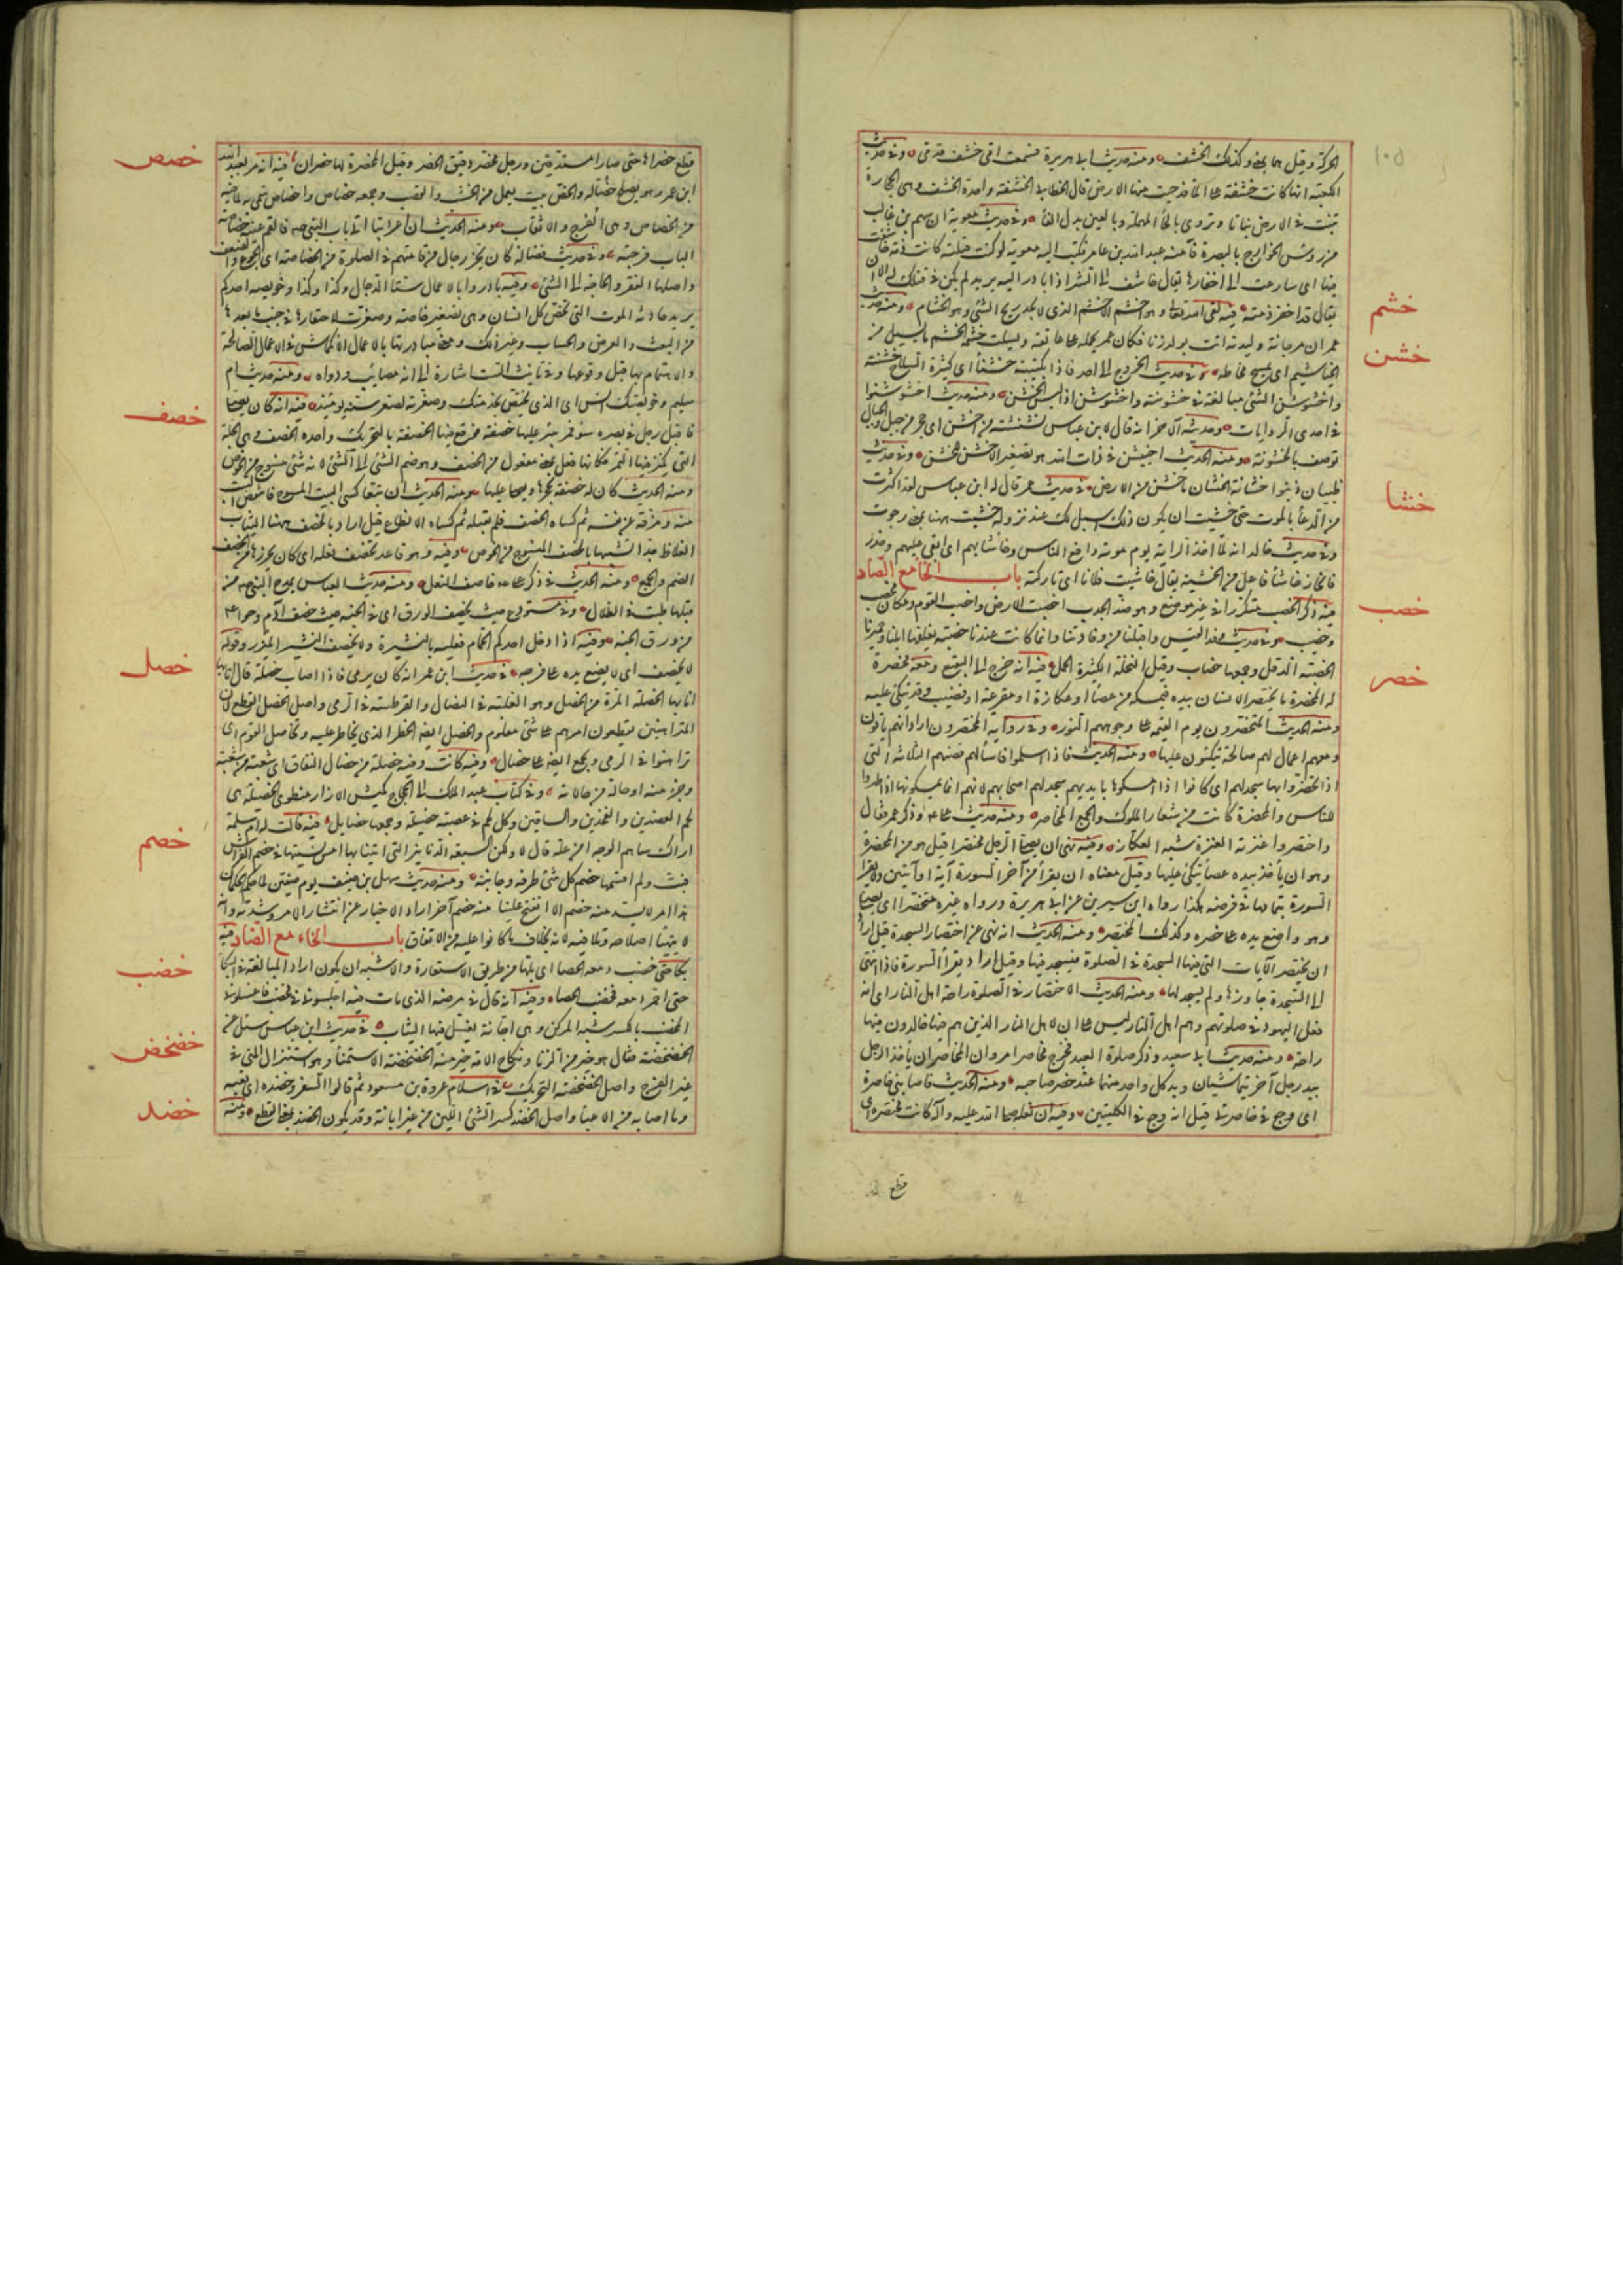 ١٠٥
الحركة وقيل هما بمعنى وكذلك الخشف ومنه حديث ابى هريرة فسمعت امى خشف قدمى وفى حديث
الكعبة انها كانت خشفة على الماء فدحيت منها الارض قال الخطابى الخشفة واحدة الخشف وهى حجارة
تنبت فى الارض نباتا وتروى بالحاء المهملة وبالعين بدل الفاء وفى حديث معوية ان سهم بن غالب
من رؤس الخوارج بالبصرة فآمنه عبد الله بن عامر فكتب اليه معوية لو كنت قتلته كانت ذمة خاشفت
فيها اى سارعت الى اخفارها يقال خاشف الى الشر اذا بادر اليه يريد لم يكن فى قتلك له الا ان
يقال قد اخفر ذمته فيه لقى الله تعالى وهو اخشم الاخشم الذى لا يجد ريح الشئ وهو الخشام ومنه حديث
عمر ان مرجانة وليدته اتت بولد زنا فكان عمر يحمله على عاتقه ويسلت خشمه الخشم ما يسيل من
الخياشيم اى يمسح مخاطه فى حديث الخروج الى احد فاذا بكتيبة خشناء اى كثيرة السلاح خشنته
واخشوشن الشئ مبالغة فى خشونته واخشوشن اذا لبس الخشن ومنه حديث اخشوشنوا
فى احدى الروايات وحديثه الآخر انه قال لابن عباس نشنشة من اخشن اى حجر من جبل والجبال
توصف بالخشونة ومنه الحديث اخيشن فى ذات الله هو تصغير الاخشن للخشن وفى حديث
ظبيان ذنبوا خشانه الخشان ما خشن من الارض فى حديث عمر قال له ابن عباس لقد اكثرت
من الدعاء بالموت حتى خشيت ان يكون ذلك اسهل لك عند نزوله خشيت ههنا بمعنى رجوت
وفى حديث خالد انه لما اخذ الراية يوم موتة دافع الناس وخاشا بهم اى ابقى عليهم وحذر
فانحاز خاشا فاعل من الخشية يقال خاشيت فلانا اى تاركته باب الخاء مع الصاد
فيه ذكر الخصب متكررا فى غير موضع وهو ضد الجدب اخصبت الارض واخصب القوم ومكان مخصب
وخصيب وفى حديث وفد القيس واقبلنا من وفادتنا وانما كانت عندنا خصبة نعلفها ابلنا وحميرنا
الخصبة الدقل وجمعها خصاب وقيل النخلة الكثيرة الحمل فيه انه خرج الى البقيع ومعه مخصرة
له المخصرة ما يختصره الانسان بيده فيمسكه من عصا او عكازة او مقرعة او قضيب وقد يتكئ عليه
ومنه الحديث المتخصرون يوم القيمة على وجوههم النور وفى رواية المختصرون اراد انهم يأتون
ومعهم اعمال لهم صالحة يتكئون عليها ومنه الحديث فاذا اسلموا فاسألهم قضبهم الثلاثة التى
اذا تخصروا بها سجد لهم اى كانوا اذا امسكوها بايديهم سجد لهم اصحابهم لانهم انما يمسكونها اذا ظهروا
للناس والمخصرة كانت من شعار الملوك والجمع المخاصر ومنه حديث على ع وذكر عمر فقال
واختصر عنزته العنزة شبه العكازة وفيه نهى ان يصلى الرجل مختصرا قيل هو من المخصرة
وهو ان يأخذ بيده عصا يتكئ عليها وقيل معناه ان يقرأ من آخر السورة آية او آيتين ولا يقرأ
السورة بتمامها فى فرضه هكذا رواه ابن سيرين عن ابى هريرة ورواه غيره متخصرا اى يصلى
وهو واضع يده على خصره وكذلك المختصر ومنه الحديث انه نهى عن اختصار السجدة قيل اراد
ان يختصر الآيات التى فيها السجدة فى الصلوة فيسجد فيها وقيل اراد يقرأ السورة فاذا انتهى
الى السجدة جاوزها ولم يسجد لها ومنه الحديث الاختصار فى الصلوة راحة اهل النار اى انه
فعل اليهود فى صلوتهم وهم اهل النار ليس على ان لاهل النار الذين هم فيها خالدون فيها
راحة ومنه حديث ابى سعيد وذكر صلوة العيد فخرج مخاصرا مروان المخاصر ان يأخذ الرجل
بيد رجل آخر يتماشيان ويد كل واحد منهما عند خصر صاحبه ومنه الحديث فاصابنى خاصرة
اى وجع فى خاصرتى قيل انه وجع فى الكليتين وفيه ان نعله صلى الله عليه وآله كانت مخصرة اى
قطع
خشم
خشن
خشا
خصب
خصر
قطع خصراها حتى صارا مستدقين ورجل مخصر دقيق الخصر وقيل المخصرة لها خصران فيه انه مر بعبد الله
ابن عمر وهو يصلح خصا له والخص بيت يعمل من الخشب والقصب وجمعه خصاص واخصاص سمى به لما فيه
من الخصاص وهى الفرج والاثقاب ومنه الحديث ان اعرابيا اتى باب النبى ص فالقم عينه خصاصة
الباب فرجته وفى حديث فضالة كان يخر رجال من قامتهم فى الصلوة من الخصاصة اى الجوع والضعف
واصلها الفقر والحاجة الى الشئ وفيه بادروا بالاعمال ستا الدجال وكذا وكذا وخويصة احدكم
يريد حادثة الموت التى تخص كل انسان وهى تصغير خاصة وصغرت لاحتقارها فى جنب ما بعدها
من البعث والعرض والحساب وغير ذلك ومعنى مبادرتها بالاعمال الانكماش فى الاعمال الصالحة
والاهتمام بها قبل وقوعها وفى تانيث الست اشارة الى انها مصائب ودواه ومنه حديث ام
سليم وخويصتك انس اى الذى يختص بخدمتك وصغرته لصغر سنه يومئذ فيه انه كان يصلى
فاقبل رجل فى بصره سوء فمر ببئر عليها خصفة فوقع فيها الخصفة بالتحريك واحدة الخصف وهى الجلة
التى يكنز فيها التمر وكانها فعل بمعنى مفعول من الخصف وهو ضم الشئ الى الشئ لانه شئ منسوج من الخوص
ومنه الحديث كان له خصفة يحجرها ويصلى عليها ومنه الحديث ان تبعا كسى البيت المسوح فانتفض البيت
منه ومزقه عن نفسه ثم كساه الخصف فلم يقبله ثم كساه الانطاع قيل اراد بالخصف ههنا الثياب
الغلاظ جدا تشبيها بالخصف المنسوج من الخوص وفيه وهو قاعد يخصف نعله اى كان يخرزها من الخصف
الضم والجمع ومنه الحديث فى ذكر على ع خاصف النعل ومنه حديث العباس يمدح النبى ص من
قبلها طبت فى الظلال وفى مستودع حيث يخصف الورق اى فى الجنة حيث خصف آدم وحوا ع
من ورق الجنة وفيه اذا دخل احدكم الحمام فعليه بالنشير ولا يخصف النشير المئزر وقوله
لا يخصف اى لا يضع يده على فرجه فى حديث ابن عمر انه كان يرمى فاذا اصاب خصلة قال انا بها
انا بها الخصلة المرة من الخصل وهو الغلبة فى النضال والقرطسة فى الرمى واصل الخصل القطع لان
المتراهنين يقطعون امرهم على شئ معلوم والخصل ايضا الخطر الذى يخاطر عليه وتخاصل القوم اى
تراهنوا فى الرمى ويجمع ايضا على خصال وفيه كانت فيه خصلة من خصال النفاق اى شعبة من شعبه
وجزء منه او حالة من حالاته وفى كتاب عبد الملك الى الحجاج كميش الازار منطوى الخصيلة هى
لحم العضدين والفخذين والساقين وكل لحم فى عصبة خصيلة وجمعها خصايل فيه قالت له ام سلمة
اراك ساهم الوجه أمن علة قال لا ولكن السبعة الدنانير التى اتينا بها امس نسيتها فى خصم الفراش
فبت ولم اقسمها خصم كل شئ طرفه وجانبه ومنه حديث سهل بن حنيف يوم صفين لما حكم الحكمان
هذا امر لا يسد منه خصم الا انفتح علينا منه خصم آخر اراد الاخبار عن انتشار الامر وشدته وانه
لا يتهيأ اصلاحه وتلافيه لانه بخلاف ما كانوا عليه من الاتفاق باب الخاء مع الضاد فيه
بكى حتى خضب دمعه الحصا اى بلها من طريق الاستعارة والاشبه ان يكون اراد المبالغة فى البكاء
حتى احمر دمعه فخضب الحصا وفيه انه قال فى مرضه الذى مات فيه اجلسونى فى مخضب فاغسلونى
المخضب بالكسر شبه المركن وهى اجانة يغسل فيها الثياب فى حديث ابن عباس سئل عن
الخضخضة فقال هو خير من الزنا ونكاح الامة خير منه الخضخضة الاستمناء وهو استنزال المنى فى
غير الفرج واصل الخضخضة التحريك فى اسلام عروة بن مسعود ثم قالوا السفر وخضده اى تعبه
وما اصابه من الاعياء واصل الخضد كسر الشئ اللين من غير ابانة وقد يكون الخضد بمعنى القطع ومنه
خصص
خصف
خصل
خصم
خضب
خضخض
خضد